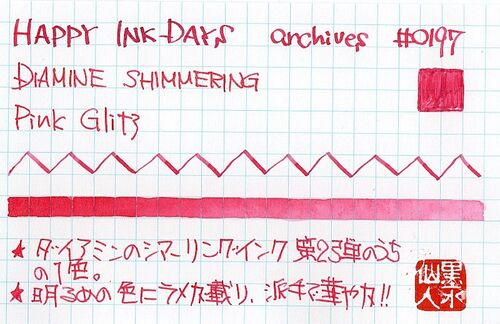 HAPPY INK-DAYS archives #0197
DIAMINE SHIMMERING
Pink Glitz
★ ダイアミンのシマーリングインク 第2弾のうち
の1色。
★ 明るめの色にラメが載り、派手で華やか!!
墨水
仙人